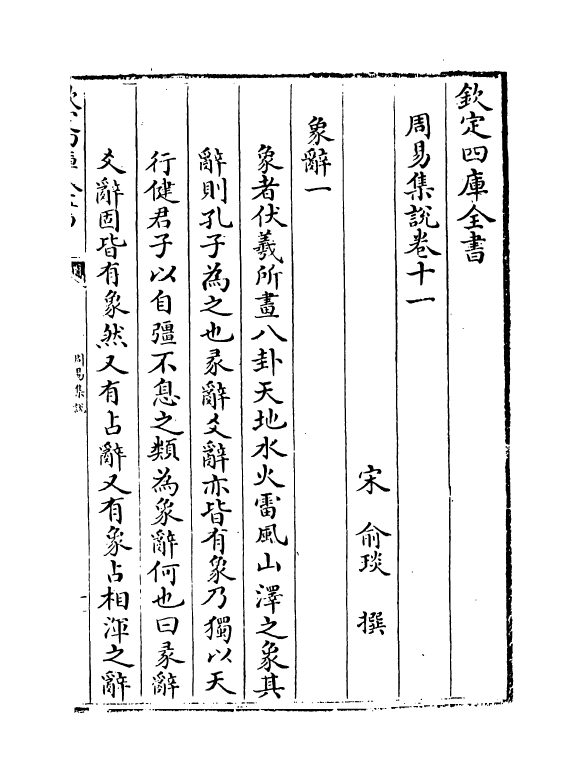 欽定四庫全書
周易集說卷十一
宋 俞琰 撰
象辭一
象者伏羲所畫八卦天地水火雷風山澤之象其
辭則孔子為之也彖辭爻辭亦皆有象乃獨以天
行健君子以自彊不息之類為象辭何也曰彖辭
爻辭固皆有象然又有占辭又有象占相渾之辭
周易集說